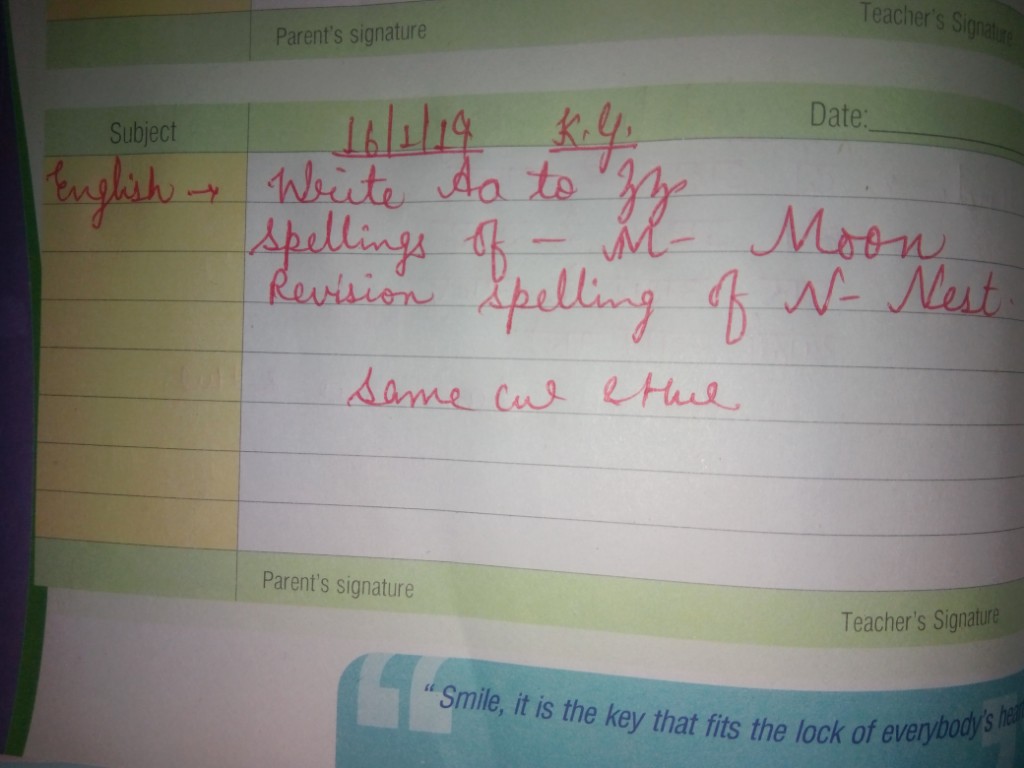 Parent's signature Teacher's Signature
Subject 16/1/19 K.G. Date:
English → Write Aa to Zz
Spellings of - M - Moon
Revision spelling of N - Nest.
Same
Parent's signature
Teacher's Signature
" Smile, it is the key that fits the lock of everybody's